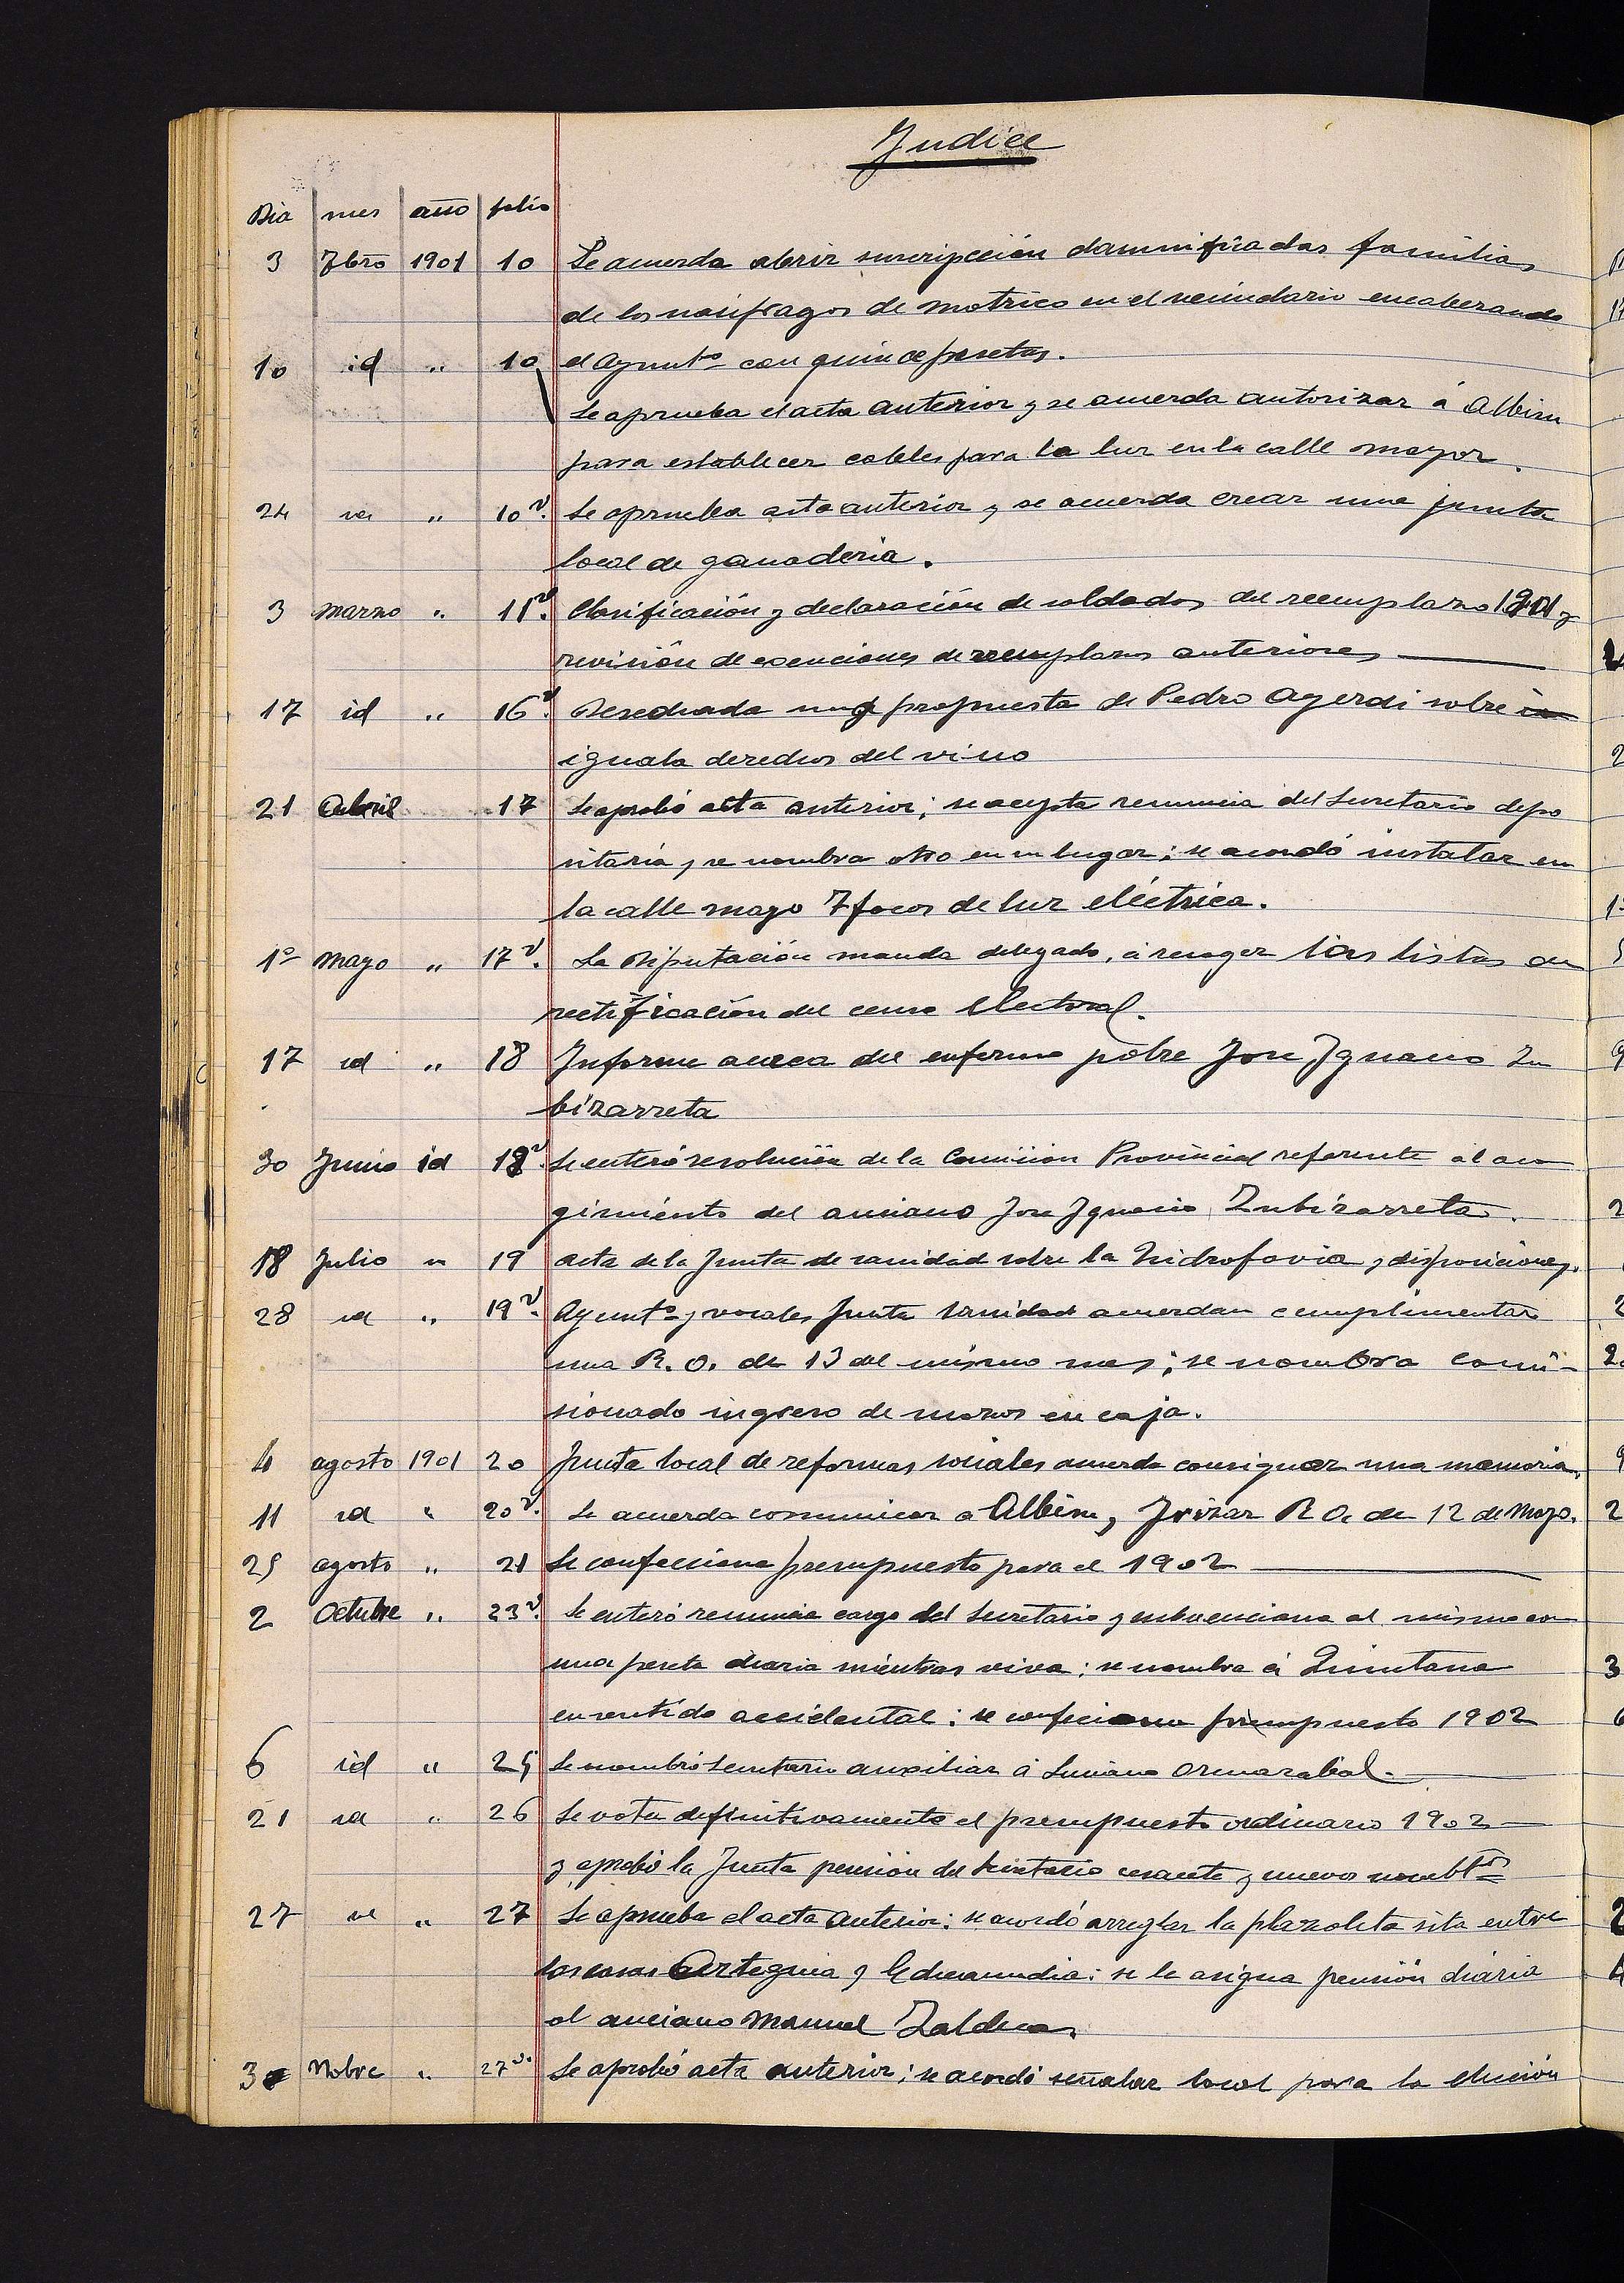 Indice
Dia mes año folio
3 Fbro 1901 10 Se acuerda abrir suscripcción damnificadas familias
de los naúfragos de motrico en el vecindario encabezando
10 id " 10 el Ayuntº con quince pesetas.
Se aprueba el acta anterior y se acuerda autorizar á Albisu
para establecer cables para la luz en la calle mayor.
24 id " 10 v. Se aprueba acta anterior y se acuerda crear una junta
local de ganaderia.
3 marzo " 11 v. Clasificación y declaración de soldados del reemplazo 1901 y
revisión de exenciones de reemplazos anteriores
17 id " 16 v. Desechada una propuesta de Pedro Ayerdi sobre
iguala derechos del vino
21 Abril 17 Se aprobó acta anterior; se acepta renuncia del Secretario depo
sitaria y se nombra otro en su lugar; se acordó instalar en
la calle mayo 7 focos de luz eléctrica.
1º Mayo " 17 v. La Diputación manda delegado, á recoger las listas de
rectificación del censo electoral.
17 id " 18 Informe acerca del enfermo pobre Jose Ignacio Zu
bizarreta
30 Junio id 18 v. Se enteró resolución de la Comision Provincial referente al aco
gimiento del anciano Jose Ignacio Zubizarreta.
18 Julio " 19 acta de la Junta de sanidad sobre la hidrofovia y disposiciones.
28 id " 19 v. Ayuntº y vocales Junta sanidad acuerdan cumplimentar
una R. O. de 13 del mismo mes; se nombra comi-
sionado ingreso de mozos en caja.
4 agosto 1901 20 Junta local de reformas sociales acuerda consignar una memoria.
11 id " 20 v. Se acuerda comunicar a Albisu y Irizar R O. de 12 de Mayo.
25 agosto " 21 Se confecciona presupuesto para el 1902
2 Octubre " 23 v. Se enteró renuncia cargo del Secretario y subvenciona al mismo con
una peseta diaria mientras viva: se nombra á Quintana
en sentido accidental: se confecciona presupuesto 1902
6 id " 25 Se nombró Secretario auxiliar á Luciano Ormazabal.
21 id " 26 Se vota definitivamente el presupuesto ordinario 1902
y aprobó la Junta pensión del Secretario cesante y nuevos nombtos
27 id " 27 Se aprueba el acta anterior: se acordó arreglar la plazoleta sita entre
las casas Arteguia y Echeaundia: se le asigna pensión diaria
al anciano Manuel Zaldua.
3 Nobre " 27 v. Se aprobó acta anterior; se acordó señalar local para la elección